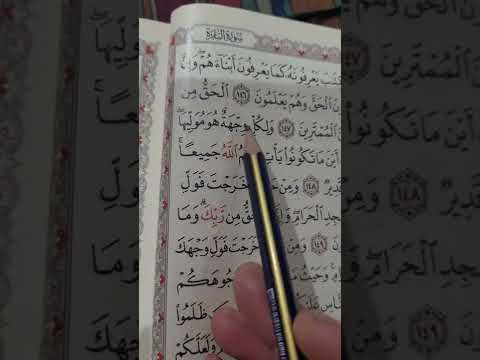 سُورَةُ البَقَرَةِ
يَعْرِفُونَهُۥ كَمَا يَعْرِفُونَ أَبْنَآءَهُمْۖ وَإِنَّ
ٱلْحَقَّ وَهُمْ يَعْلَمُونَ ١٤٦ ٱلْحَقُّ مِن
ٱلْمُمْتَرِينَ ١٤٧ وَلِكُلٍّ وِجْهَةٌ هُوَ مُوَلِّيهَاۖ
أَيْنَ مَا تَكُونُوا۟ يَأْتِ ٱللَّهُ جَمِيعًاۚ
قَدِيرٌ ١٤٨ وَمِنْ خَرَجْتَ فَوَلِّ
ٱلْحَرَامِۖ مِن رَّبِّكَۗ وَمَا
١٤٩ وَمِنْ خَرَجْتَ فَوَلِّ وَجْهَكَ
ٱلْحَرَامِۚ وَحَيْثُ وُجُوهَكُمْ
ظَلَمُوا۟
وَلَعَلَّكُمْ